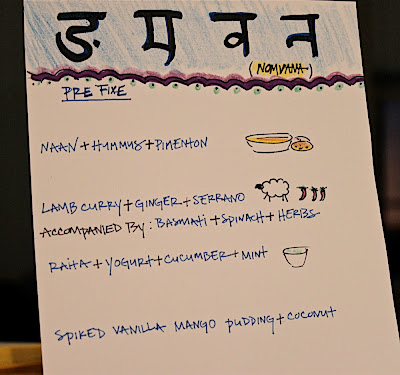 ङ म व न
(NOMVANA)
PRE FIXE
NAAN + HUMMUS + PIMENTON
LAMB CURRY + GINGER + SERRANO
ACCOMPANIED BY: BASMATI + SPINACH + HERBS
RAITA + YOGURT + CUCUMBER + MINT
SPIKED VANILLA MANGO PUDDING + COCONUT